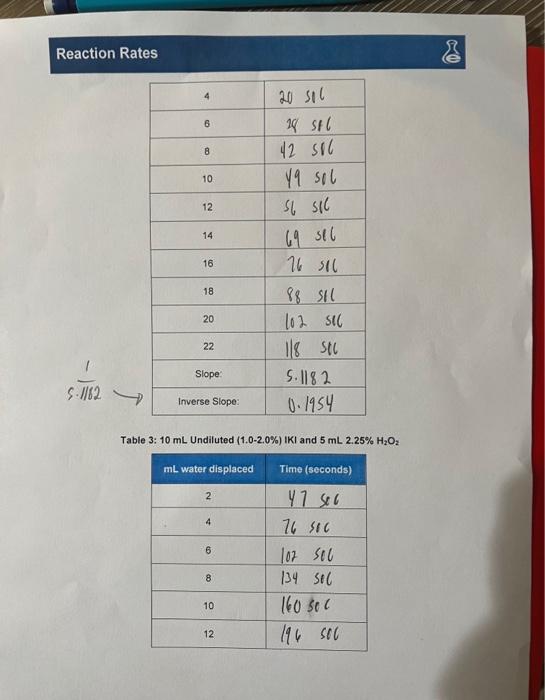 Reaction Rates
4 20 sec
6 29 sec
8 42 sec
10 49 sec
12 56 sec
14 69 sec
16 76 sec
18 88 sec
20 102 sec
22 118 sec
Slope: 5.1182
1
5.1182
Inverse Slope: 0.1954
Table 3: 10 mL Undiluted (1.0-2.0%) IKI and 5 mL 2.25% H₂O₂
mL water displaced Time (seconds)
2 47 sec
4 76 sec
6 102 sec
8 134 sec
10 160 sec
12 196 sec